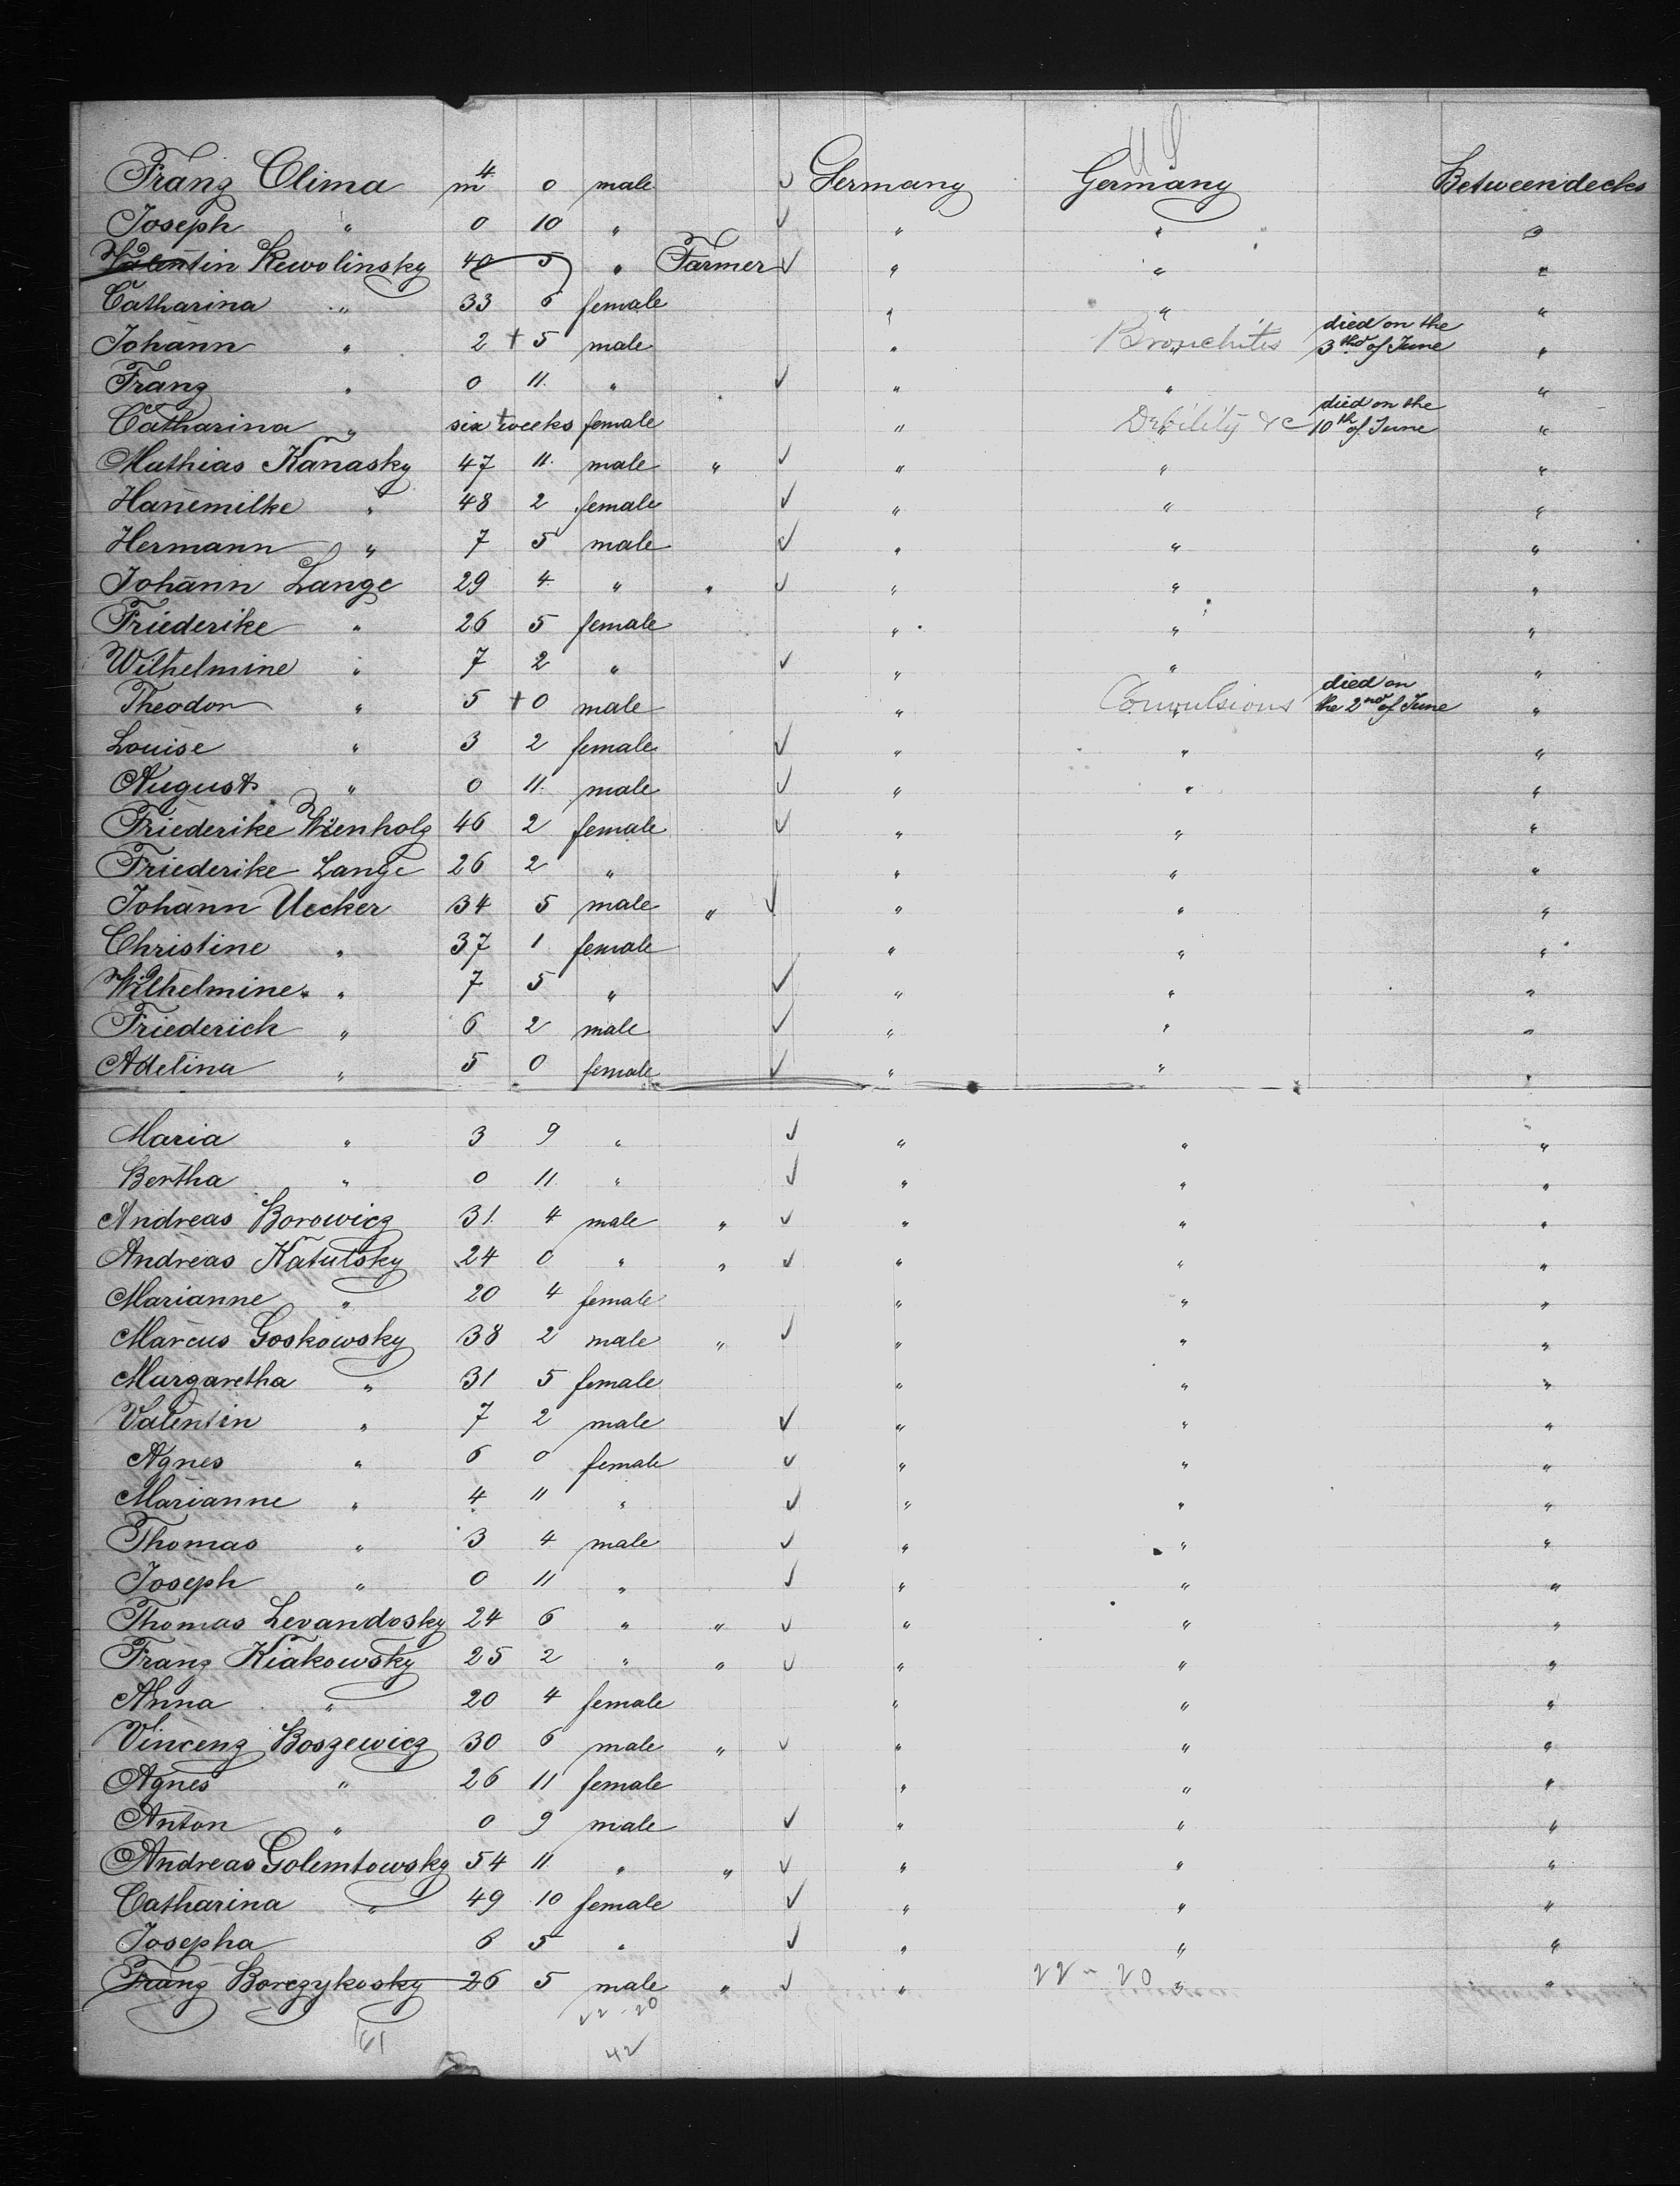 U S
Franz Clima 4 m 0 male ✓ Germany Germany Between decks
Joseph " 0 10 " ✓ " " "
Valentin Rewolinsky 40 5 " Farmer ✓ " " "
Catharina " 33 6 female " " "
Johann " 2 + 5 male " Bronchites " died on the 3thd of June "
Franz " 0 11. " ✓ " " "
Catharina " six + weeks female " Debility &c " died on the 10th of June "
Mathias Kanasky 47 11. male " ✓ " " "
Hanemilke " 48 2 female ✓ " " "
Hermann " 7 5 male ✓ " " "
Johann Lange 29 4. " " ✓ " " "
Friederike " 26 5 female " " "
Wilhelmine " 7 2 " ✓ " " "
Theodor " 5 + 0 male " Convulsions " died on the 2nd of June "
Louise " 3 2 female ✓ " " "
August " 0 11. male ✓ " " "
Friederike Wienholz 46 2 female ✓ " " "
Friederike Lange 26 2 " " " "
Johann Uecker 34 5 male " ✓ " " "
Christine " 37 1 female " " "
Wilhelmine " 7 5 " ✓ " " "
Friederich " 6 2 male ✓ " " "
Adelina " 5 0 female ✓ " " "
Maria " 3 9 " ✓ " " "
Bertha " 0 11. " ✓ " " "
Andreas Borowicz 31. 4 male " ✓ " " "
Andreas Katutsky 24 0 " " ✓ " " "
Marianne " 20 4 female " " "
Marcus Goskowsky 38 2 male " ✓ " " "
Margaretha " 31 5 female " " "
Valentin " 7 2 male ✓ " " "
Agnes " 6 0 female ✓ " " "
Marianne " 4 11 " ✓ " " "
Thomas " 3 4 male ✓ " " "
Joseph " 0 11 " ✓ " " "
Thomas Levandosky 24 6 " " ✓ " " "
Franz Kiakowsky 25 2 " " ✓ " " "
Anna " 20 4 female " " "
Vincenz Boszewicz 30 6 male " ✓ " " "
Agnes " 26 11 female " " "
Anton " 0 9 male ✓ " " "
Andreas Golemtowsky 54 11. " " ✓ " " "
Catharina " 49 10 female ✓ " " "
Josepha 6 5 " ✓ " " "
Franz Borczykosky 26 5 male " ✓ " 22 - 20 " "
22 - 20
161 42